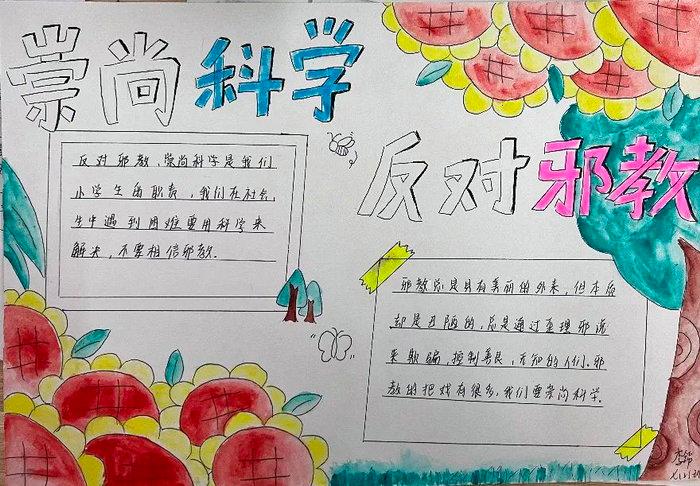 崇尚科学
反对邪教
反对邪教,崇尚科学是我们
小学生的职责,我们在社会
生中遇到困难要用科学来
解决,不要相信邪教.
邪教总是具有美丽的外表,但本后
却是丑陋的,总是通过歪理邪说
来欺骗,控制善良,无知的人们.邪
教的把戏有很多,我们要崇尚科学.